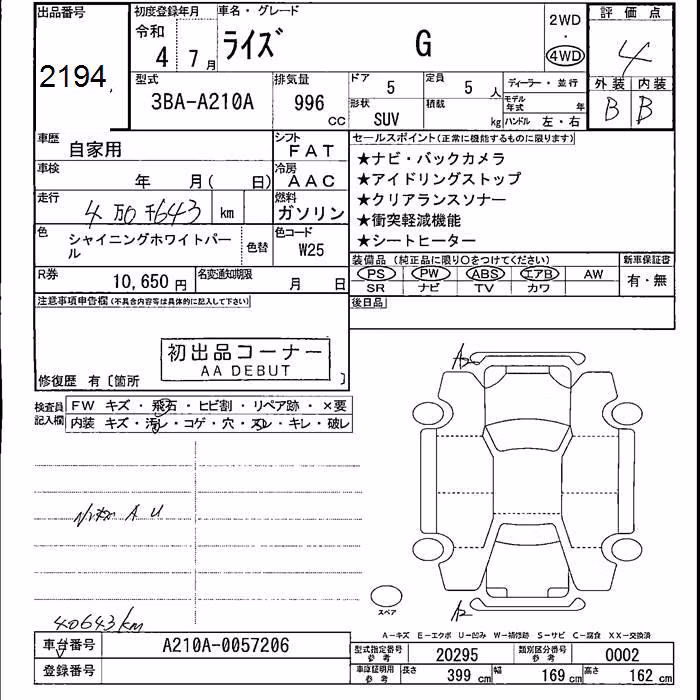 出品番号
2194
初度登録年月
令和
4 7 月
車名・グレード
ライズ G
2WD
・
4WD
評価点
4
外装 内装
B B
型式
3BA-A210A
排気量
996
CC
ドア 5
定員 5 人
形状 SUV
積載 kg
ディーラー・並行
モデル年式 年
ハンドル 左・右
車歴 自家用
シフト
FAT
車検 年 月( 日)
冷房
AAC
走行 4万0千643 km
燃料
ガソリン
色
シャイニングホワイトパール
色替
色コード
W25
R券 10,650 円
名変通知期限 月 日
セールスポイント(正常に機能するものに限ります)
★ナビ・バックカメラ
★アイドリングストップ
★クリアランスソナー
★衝突軽減機能
★シートヒーター
装備品 (純正品に限り○をつけてください)
新車保証書
PS PW ABS エアB AW
有・無
SR ナビ TV カワ
後日品
注意事項申告欄(不具合内容等は具体的に記入して下さい)
初出品コーナー
AA DEBUT
修復歴 有〔箇所 〕
検査員記入欄
FW キズ・飛石・ヒビ割・リペア跡・×要
内装 キズ・汚レ・コゲ・穴・スレ・キレ・破レ
A2
A U
40643km
A2
スペア
A-キズ E-エクボ U-凹み W-補修跡 S-サビ C-腐食 XX-交換済
車台番号 A210A-0057206
登録番号
型式指定番号
参考
20295
類別区分番号
参考
0002
車庫証明用
参考
長さ 399 cm
幅 169 cm
高さ 162 cm